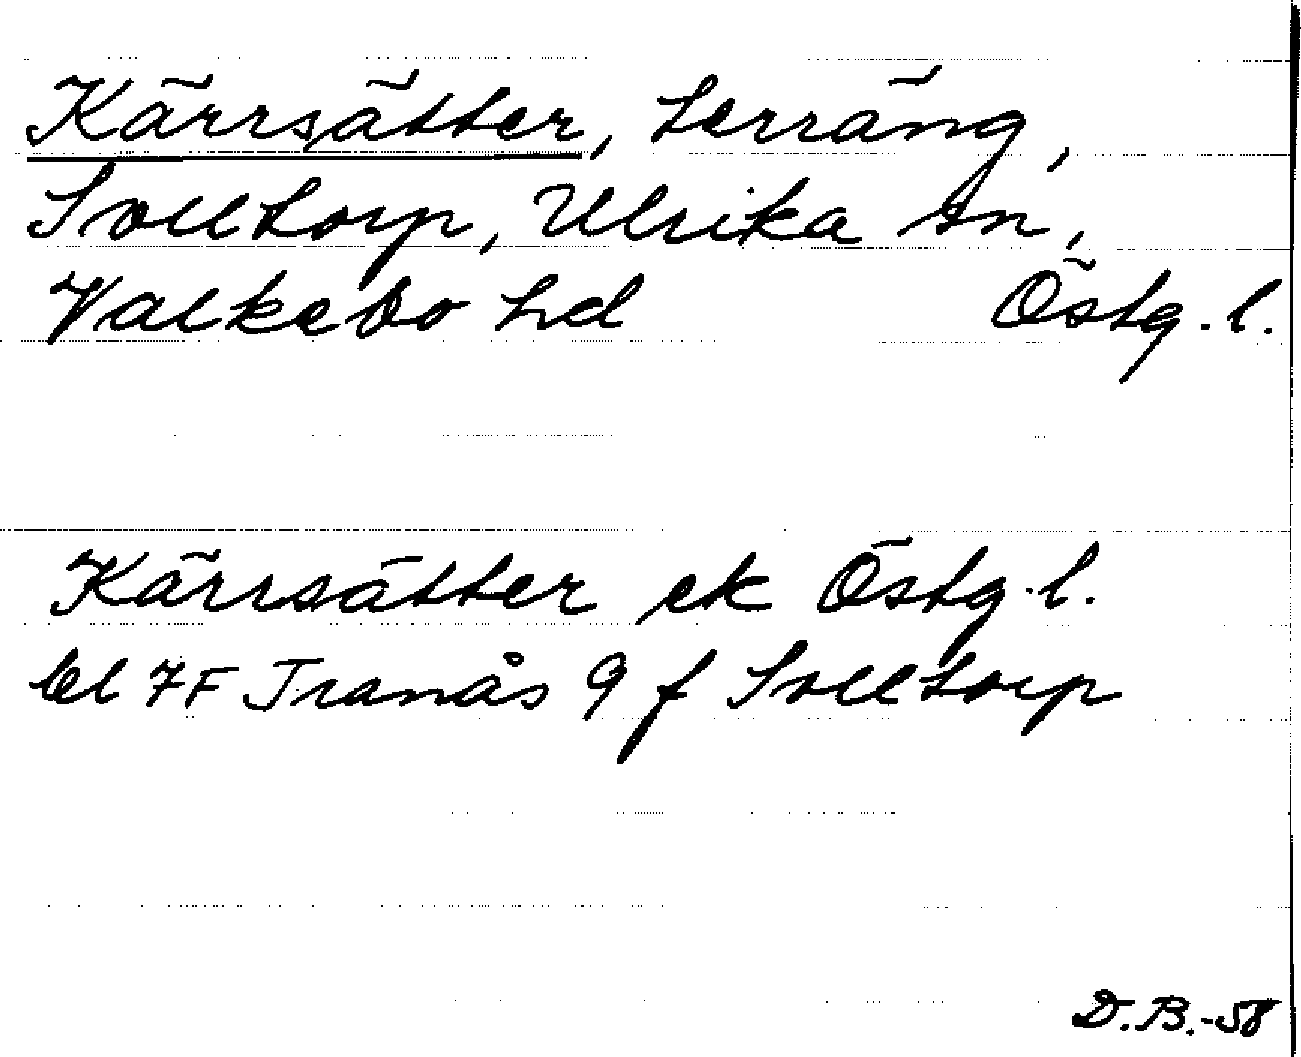 Kärrsätter, terräng,
Solltorp, Ulrika sn,
Valkebo hd Östg. l.
Kärrsätter ek Östg. l.
bl 7F Tranås 9 f Solltorp
D. B.-58